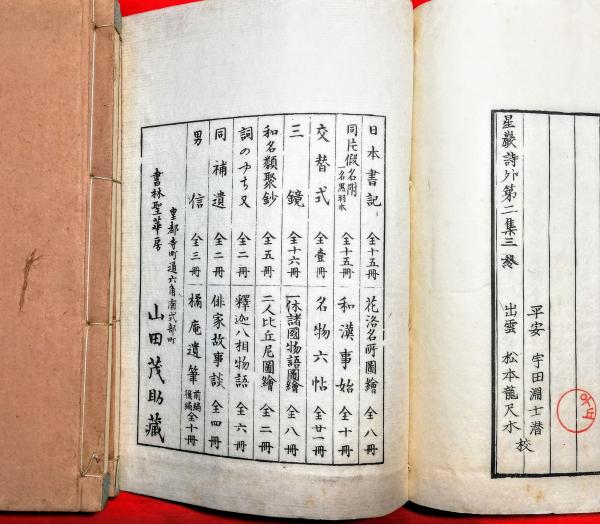 星巖詩外第二集三 終
平安 宇田淵士潜
出雲 松本龍尺水 校
日本書記 全十五冊 花洛名所圖繪 全八冊
同片假名附 名黒羽本 全十五冊 和漢事始 全十冊
交替式 全壹冊 名物六帖 全廿一冊
三鏡 全十六冊 一休諸國物語圖繪 全八冊
和名類聚鈔 全五冊 二人比丘尼圖繪 全二冊
詞のやちまた 全二冊 釋迦八相物語 全六冊
同補遺 全二冊 俳家故事談 全四冊
男信 全三冊 橘庵遺筆 前編後編 全十冊
皇都寺町通六角南式部町
書林聖華房 山田茂助藏